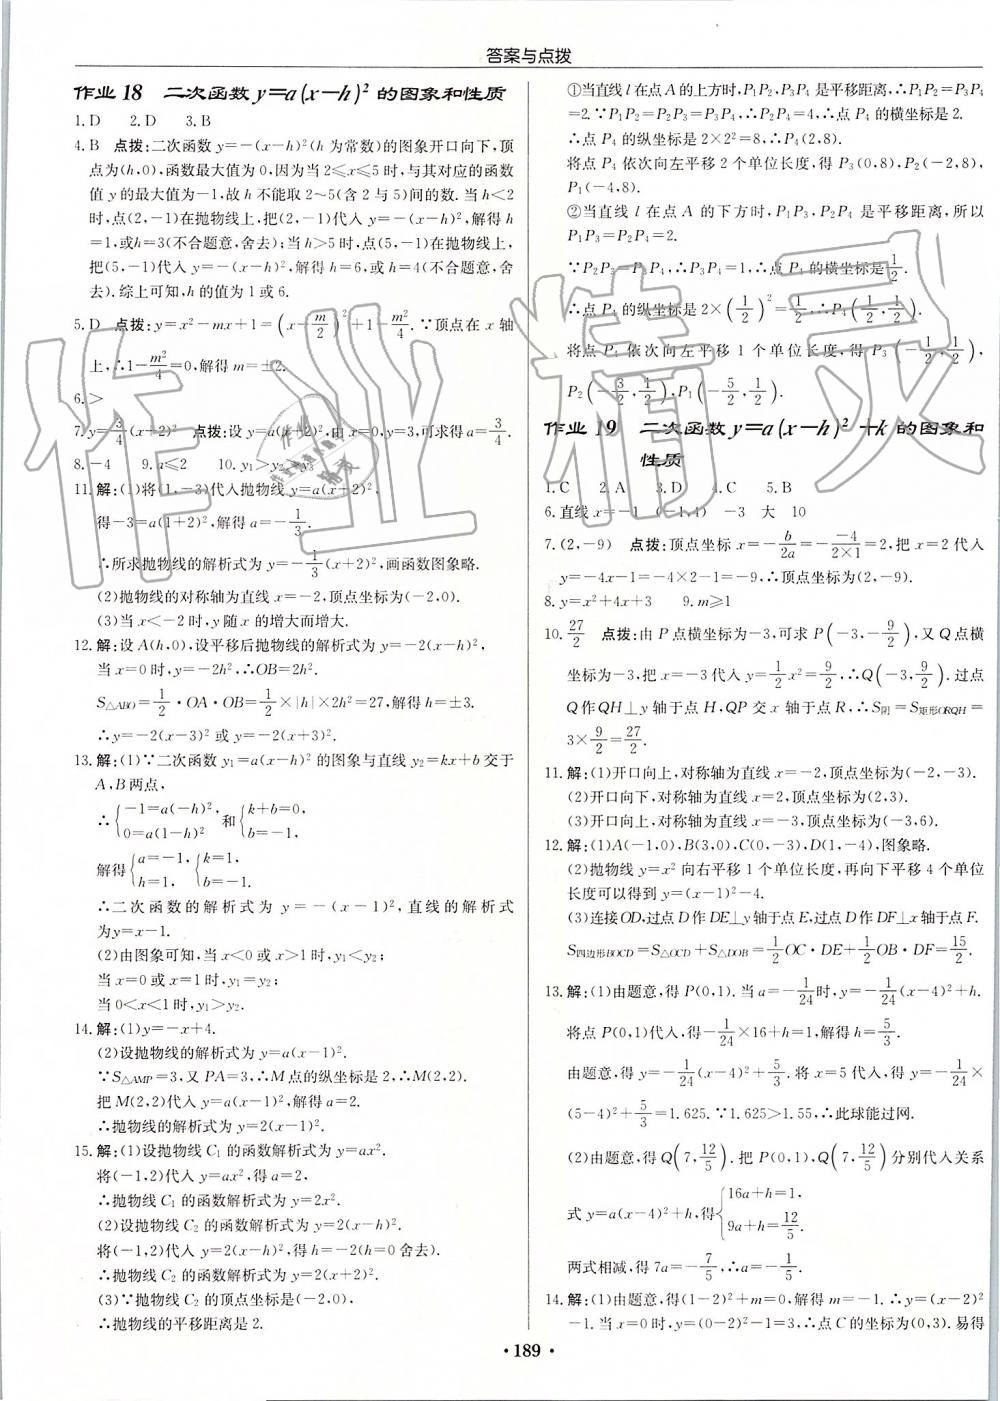 答案与点拨
作业 18　二次函数 y=a(x−h)² 的图象和性质
1. D　2. D　3. B
4. B　点拨:二次函数 y=−(x−h)²(h 为常数)的图象开口向下,顶
点为(h,0),函数最大值为 0,因为当 2≤x≤5 时,与其对应的函数
值 y 的最大值为−1,故 h 不能取 2~5(含 2 与 5)间的数. 当 h<2
时,点(2,−1)在抛物线上,把(2,−1)代入 y=−(x−h)²,解得 h
=1,或h=3(不合题意,舍去);当 h>5 时,点(5,−1)在抛物线上,
把(5,−1)代入 y=−(x−h)²,解得 h=6,或 h=4(不合题意,舍
去).综上可知,h 的值为 1 或 6.
5. D　点拨:y=x²−mx+1=(x−m/2)²+1−m²/4. ∵顶点在 x 轴
上,∴1−m²/4=0,解得 m=±2.
6. >
7. y=3/4(x+2)²　点拨:设 y=a(x+2)²,由 x=0,y=3,可求得 a=3/4.
8. −4　9. a≤2　10. y₁>y₂>y₃
11. 解:(1)将(1,−3)代入抛物线 y=a(x+2)²,
得−3=a(1+2)²,解得 a=−1/3.
∴所求抛物线的解析式为 y=−1/3(x+2)²,画函数图象略.
(2)抛物线的对称轴为直线 x=−2,顶点坐标为(−2,0).
(3)当 x<−2 时,y 随 x 的增大而增大.
12. 解:设 A(h,0),设平移后抛物线的解析式为 y=−2(x−h)²,
当 x=0 时,y=−2h²,∴OB=2h².
S△ABO=1/2·OA·OB=1/2×|h|×2h²=27,解得 h=±3.
∴y=−2(x−3)² 或 y=−2(x+3)².
13. 解:(1)∵二次函数 y₁=a(x−h)² 的图象与直线 y₂=kx+b 交于
A,B 两点,
∴{−1=a(−h)², 0=a(1−h)² 和{k+b=0, b=−1,
解得{a=−1, h=1, {k=1, b=−1.
∴二次函数的解析式为 y=−(x−1)²,直线的解析式
为 y=x−1.
(2)由图象可知,当 x<0 或 x>1 时,y₁<y₂;
当 x=0 或 x=1 时,y₁=y₂;
当 0<x<1 时,y₁>y₂.
14. 解:(1)y=−x+4.
(2)设抛物线的解析式为 y=a(x−1)².
∵S△AMP=3,又 PA=3,∴M 点的纵坐标是 2,∴M(2,2).
把 M(2,2)代入 y=a(x−1)²,解得 a=2.
∴抛物线的解析式为 y=2(x−1)².
15. 解:(1)设抛物线 C₁ 的函数解析式为 y=ax².
将(−1,2)代入 y=ax²,得 a=2.
∴抛物线 C₁ 的函数解析式为 y=2x².
(2)设抛物线 C₂ 的函数解析式为 y=2(x−h)².
将(−1,2)代入 y=2(x−h)²,得 h=−2(h=0舍去).
∴抛物线 C₂ 的函数解析式为 y=2(x+2)².
(3)∵抛物线 C₂ 的顶点坐标是(−2,0),
∴抛物线的平移距离是 2.
①当直线 l 在点 A 的上方时,P₁P₂,P₃P₄ 是平移距离,∴P₁P₂=P₃P₄
=2. ∵P₁P₂=P₂P₃=P₃P₄,∴P₂P₄=4,∴点 P₄ 的横坐标是 2.
∴点 P₄ 的纵坐标是 2×2²=8,∴P₄(2,8).
将点 P₄ 依次向左平移 2 个单位长度,得 P₃(0,8),P₂(−2,8),
P₁(−4,8).
②当直线 l 在点 A 的下方时,P₁P₃,P₂P₄ 是平移距离,所以
P₁P₃=P₂P₄=2.
∵P₂P₃=P₃P₄,∴P₃P₄=1,∴点 P₄ 的横坐标是1/2.
∴点 P₄ 的纵坐标是 2×(1/2)²=1/2,∴P₄(1/2,1/2).
将点 P₄ 依次向左平移 1 个单位长度,得 P₃(−1/2,1/2),
P₂(−3/2,1/2),P₁(−5/2,1/2).
作业 19　二次函数 y=a(x−h)²+k 的图象和
性质
1. C　2. A　3. D　4. C　5. B
6. 直线 x=−1　(−1,4)　−3　大　10
7. (2,−9)　点拨:顶点坐标 x=−b/2a=−−4/2×1=2,把 x=2 代入
y=−4x−1=−4×2−1=−9,∴顶点坐标为(2,−9).
8. y=x²+4x+3　9. m≥1
10. 27/2　点拨:由 P 点横坐标为−3,可求 P(−3,−9/2),又 Q 点横
坐标为−3,把 x=−3 代入 y=1/2x²=9/2,∴Q(−3,9/2).过点
Q 作 QH⊥y 轴于点 H,QP 交 x 轴于点 R,∴S阴=S矩形ORQH=
3×9/2=27/2.
11. 解:(1)开口向上,对称轴为直线 x=−2,顶点坐标为(−2,−3).
(2)开口向下,对称轴为直线 x=2,顶点坐标为(2,3).
(3)开口向上,对称轴为直线 x=−3,顶点坐标为(−3,6).
12. 解:(1)A(−1,0),B(3,0),C(0,−3),D(1,−4),图象略.
(2)抛物线 y=x² 向右平移 1 个单位长度,再向下平移 4 个单位
长度可以得到 y=(x−1)²−4.
(3)连接OD,过点 D 作 DE⊥y 轴于点 E,过点 D 作 DF⊥x 轴于点 F.
S四边形BOCD=S△OCD+S△DOB=1/2OC·DE+1/2OB·DF=15/2.
13. 解:(1)由题意,得 P(0,1). 当 a=−1/24时,y=−1/24(x−4)²+h.
将点 P(0,1)代入,得−1/24×16+h=1,解得 h=5/3.
由题意,得 y=−1/24(x−4)²+5/3. 将 x=5 代入,得 y=−1/24×
(5−4)²+5/3=1.625. ∵1.625>1.55,∴此球能过网.
(2)由题意,得 Q(7,12/5).把 P(0,1),Q(7,12/5)分别代入关系
式 y=a(x−4)²+h,得{16a+h=1, 9a+h=12/5.
两式相减,得 7a=−7/5,∴a=−1/5.
14. 解:(1)由题意,得(1−2)²+m=0,解得 m=−1. ∴y=(x−2)²
−1. 当 x=0 时,y=(0−2)²−1=3,∴点 C 的坐标为(0,3). 易得
· 189 ·
作业精灵